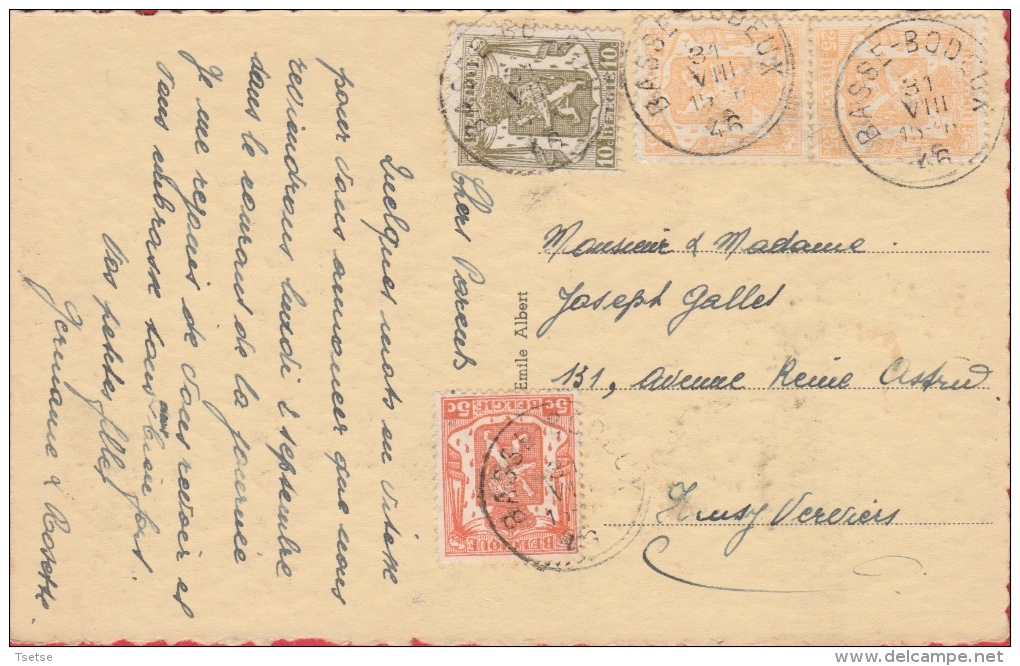 Chers Parents
Quelques mots en vitesse
pour vous annoncer que nous
reviendrons lundi 2 septembre
dans le courant de la journée
Je me rejouis de vous revoir et
vous embrasse tous bien fort.
Vos petites filles
Germaine & Rosette.
Emile Albert
10 BELGIE 10
BASSE-BODEUX
31
VIII
15-
46
25
BASSE-BODEUX
31
VIII
15-
46
Monsieur & Madame
Joseph Gallet
131, Avenue Reine Astrid
Heusy Verviers
5c BELGIË 5c
BELGIQUE
BASS
Tsetse
delcampe.net